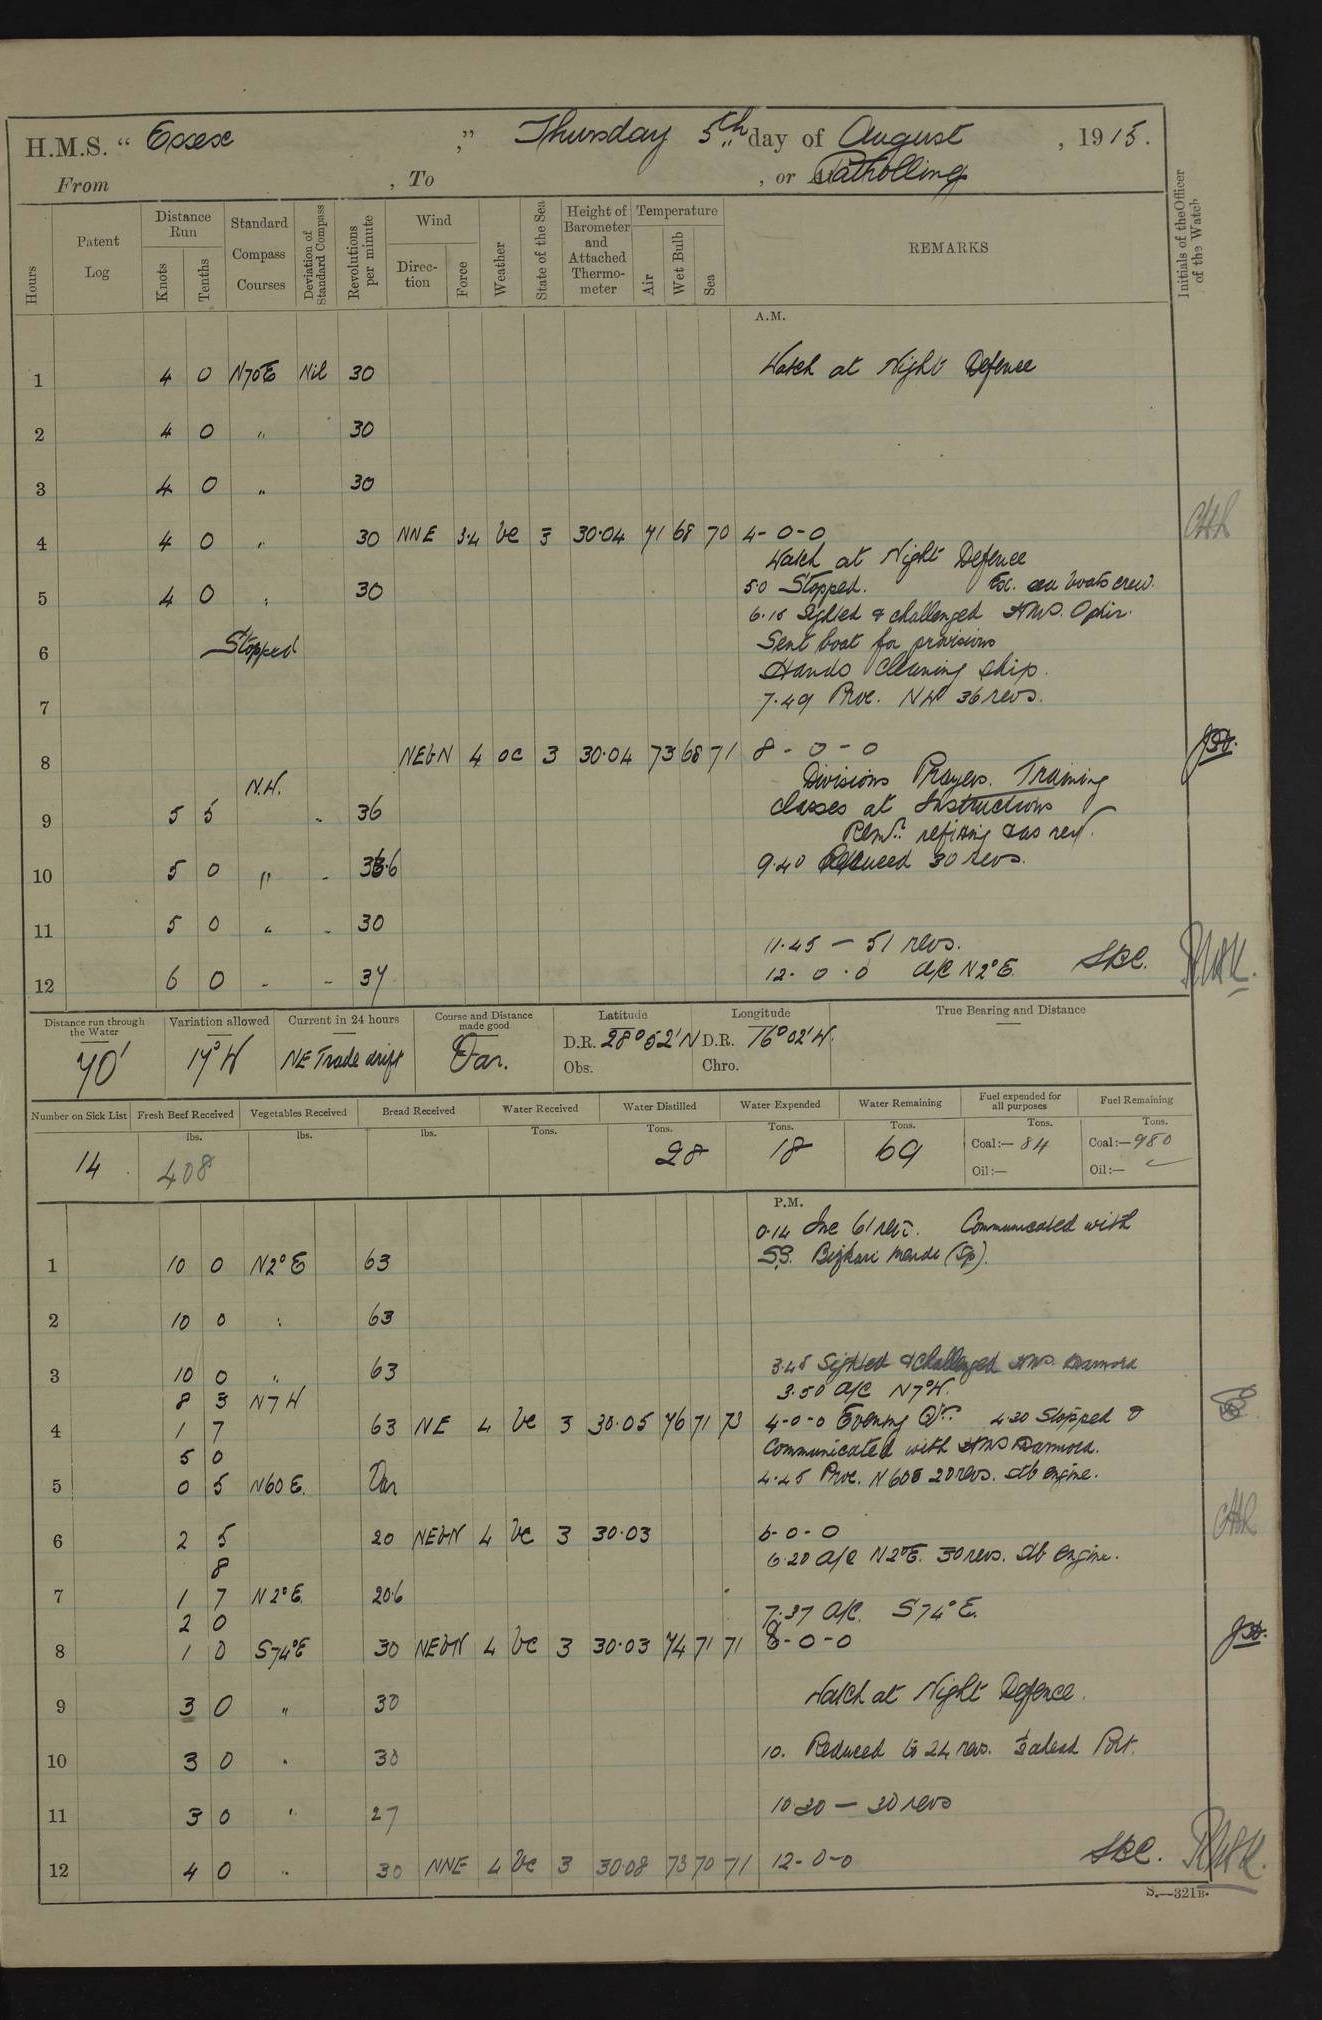 H.M.S. " Essex ," Thursday 5th day of August , 1915.
From , To , or Patrolling
Hours
Patent Log
Distance Run
Knots
Tenths
Standard Compass Courses
Deviation of Standard Compass
Revolutions per minute
Wind
Direction
Force
Weather
State of the Sea
Height of Barometer and Attached Thermometer
Temperature
Air
Wet Bulb
Sea
REMARKS
Initials of the Officer of the Watch
A.M.
1 4 0 N70E Nil 30 Watch at Night Defence
2 4 0 " 30
3 4 0 " 30
4 4 0 " 30 NNE 3.4 bc 3 30.04 71 68 70 4-0-0
Watch at Night Defence
5 4 0 " 30 5.0 Stopped. Ex. sea boats crew.
6.15 Sighted & challenged HMS. Ophir.
6 Stopped Sent boat for provisions
Hands cleaning ship.
7 7.49 Proc. NW 36 revs.
8 NEbN 4 oc 3 30.04 73 68 71 8-0-0
Divisions Prayers. Training
N.W.
9 5 5 - 36 classes at Instructions
refitting as req.
10 5 0 " - 9.40 Reduced 30 revs.
11 5 0 " - 30
11.45 — 51 revs.
12 6 0 - - 37 12.0.0 A/C N2°E.
Distance run through the Water 70'
Variation allowed 17° W
Current in 24 hours NE Trade drift
Course and Distance made good Var.
Latitude D.R. 28° 52' N
Obs.
Longitude D.R. 76° 02' W.
Chro.
True Bearing and Distance
Number on Sick List 14
Fresh Beef Received lbs. 408
Vegetables Received lbs.
Bread Received lbs.
Water Received Tons.
Water Distilled Tons. 28
Water Expended Tons. 18
Water Remaining Tons. 69
Fuel expended for all purposes Tons. Coal:— 84
Oil:—
Fuel Remaining Tons. Coal:— 980
Oil:—
P.M.
0.14 Inc 61 revs. Communicated with
1 10 0 N2°E 63 S.S. Mendi (Sp).
2 10 0 " 63
3 10 0 " 63 3.45 Sighted & challenged HMS.
8 3 N7W 3.50 A/C N7°W.
4 1 7 63 NE 4 bc 3 30.05 76 71 73 4-0-0 Evening Qrs. 4.30 Stopped &
5 0 Communicated with HMS
5 0 5 N60E. Var 4.45 Proc. N60E 20 revs. Stb engine.
6 2 5 20 NEbN 4 bc 3 30.03 6-0-0
8 6.20 A/C N2°E. 30 revs. Stb engine.
7 1 7 N2°E. 20.6
2 0 7.37 A/C. S74°E.
8 1 0 S74°E 30 NEbN 4 bc 3 30.03 74 71 71 8-0-0
9 3 0 " 30 Watch at Night Defence.
10 3 0 " 30 10. Reduced to 24 revs. ½ ahead Port.
11 3 0 " 27 10.30 — 30 revs
12 4 0 " 30 NNE 4 bc 3 30.08 73 70 71 12-0-0
S.—321B.